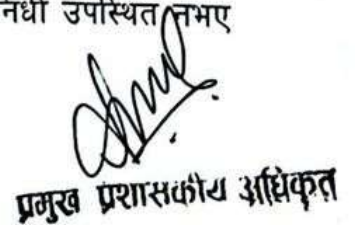 नधी उपस्थित नभए
प्रमुख प्रशासकीय अधिकृत